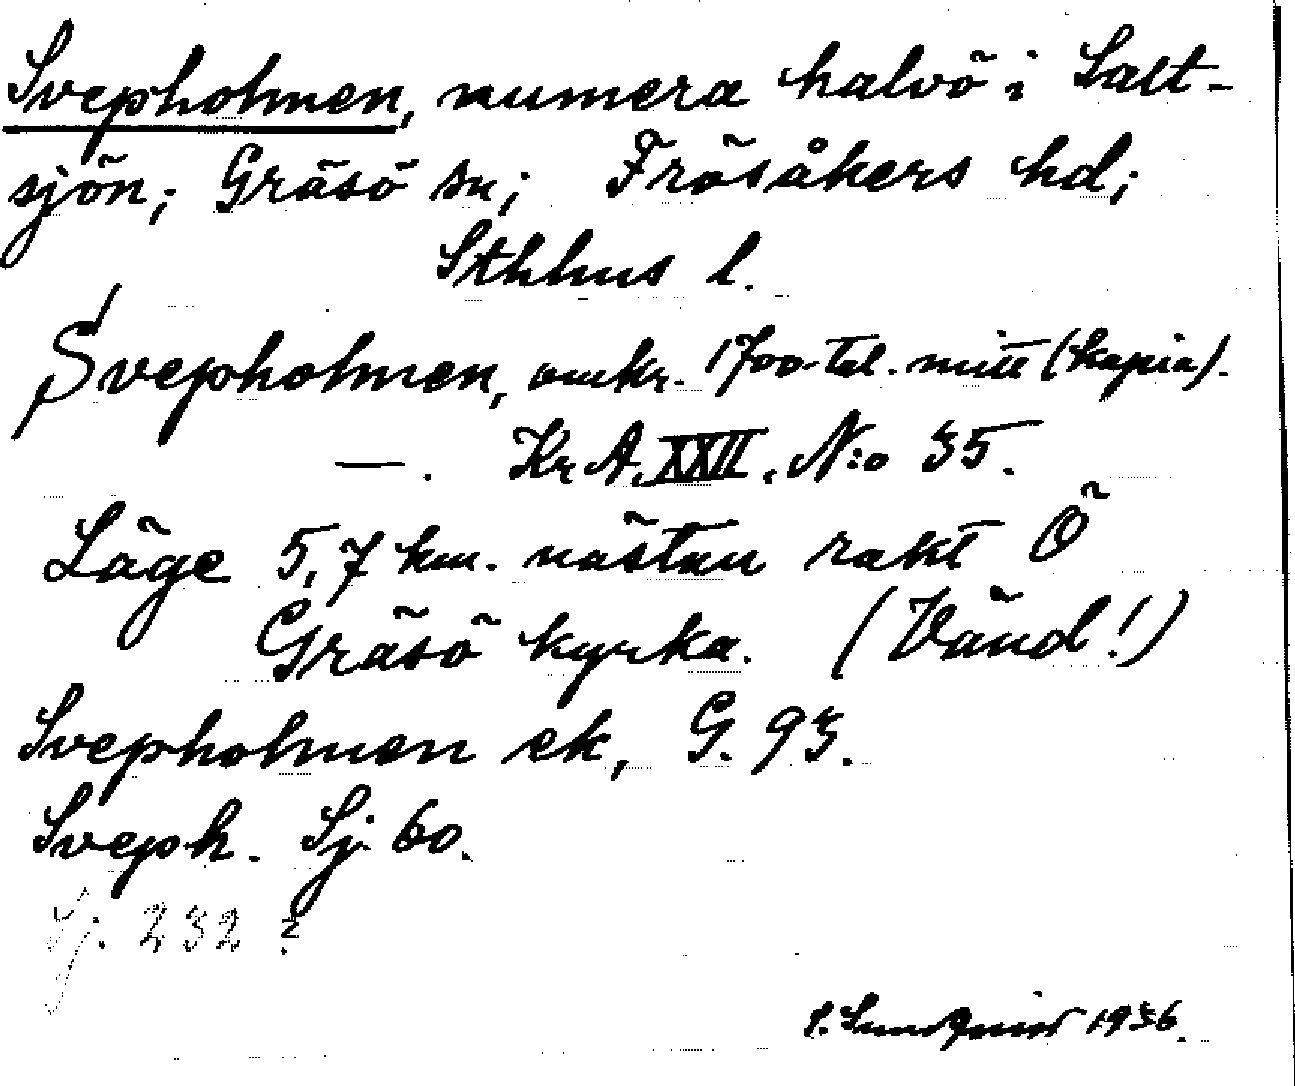 Svepholmen, numera halvö i Salt-
sjön; Gräsö sn; Frösåkers hd;
Sthlms l.
Svepholmen, omkr. 1700-tal. mitt (kopia).
—. Kr. A. XXII. N:o 35.
Läge 5,7 km. nästan rakt Ö
Gräsö kyrka. (Vänd!)
Svepholmen ek, G. 93.
Sveph. Sj 60.
Sj. 232 ?
S. Sundqvist 1936.